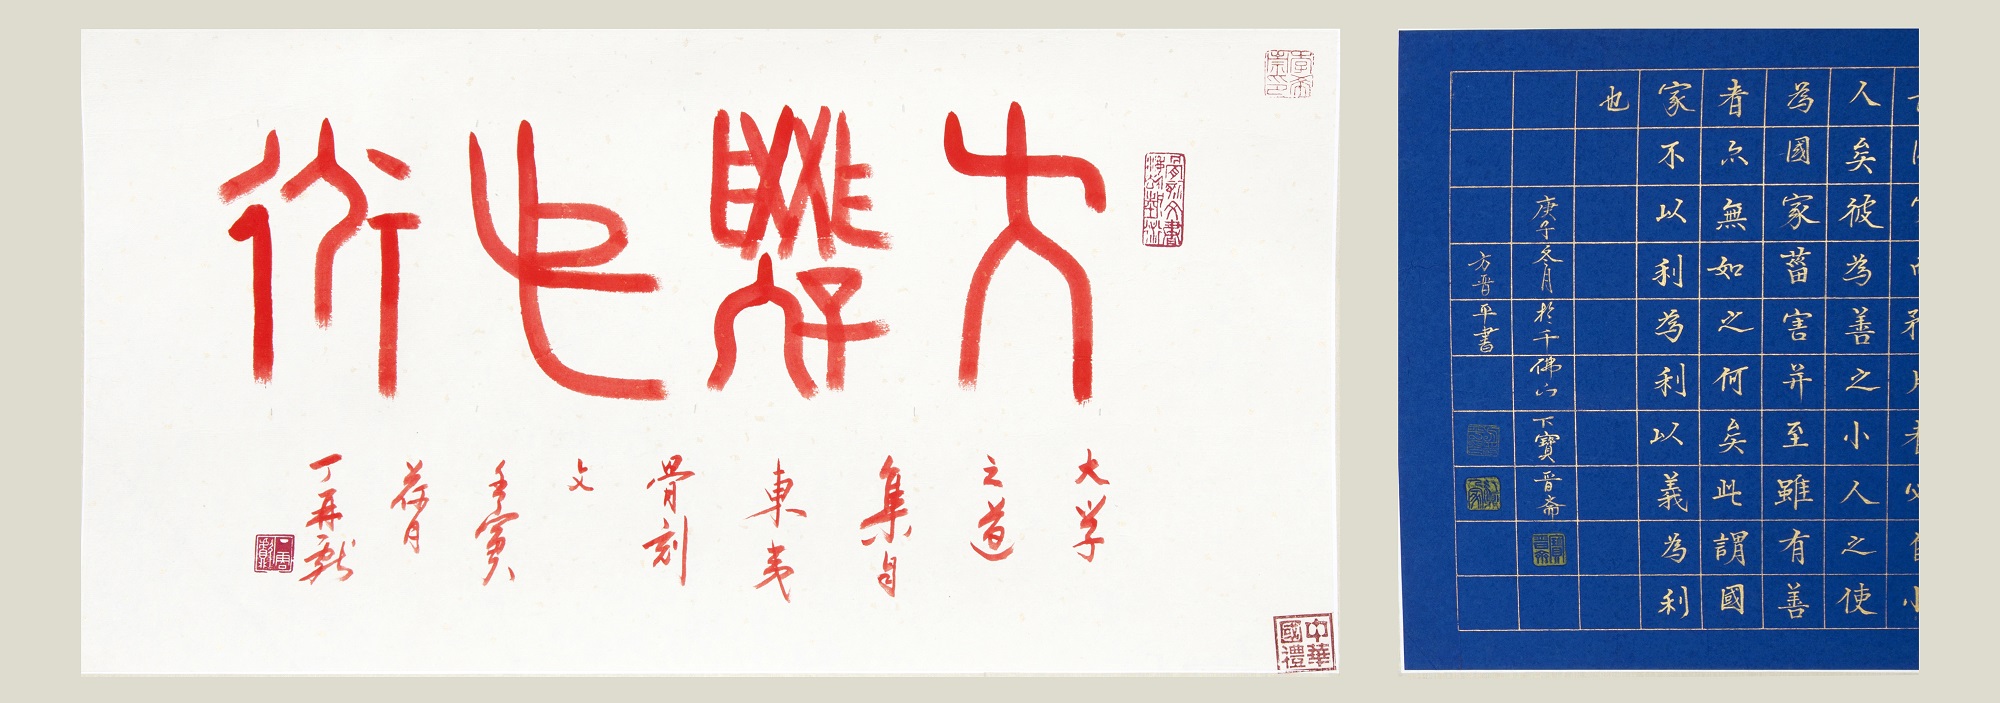 大學之道
大学
之道
集自
東夷
骨刻
文
壬寅
荷月
丁再献
中華國禮
人矣彼為善之小人之使
為國家菑害并至雖有善
者亦無如之何矣此謂國
家不以利為利以義為利
也
庚子冬月於千佛山下寶晋斋
方晋平書